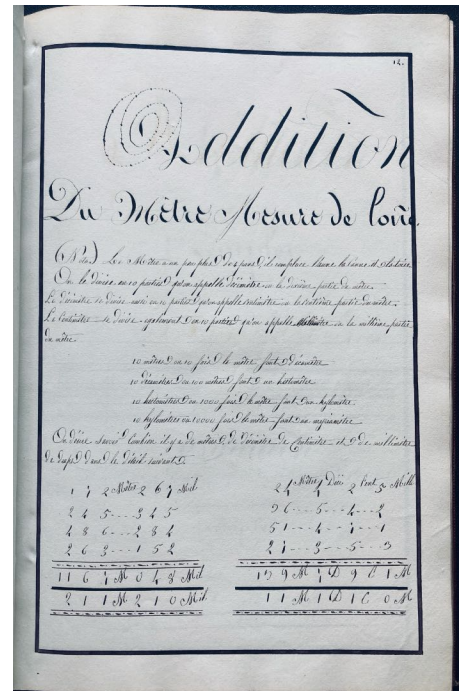 12.
Addition
Du Mètre Mesure de
(Nota) Le Mètre a un peu plus de pans, il remplace l'aune la canne et
On le divise en 10 parties qu'on appelle décimètre ou la dixième partie du mètre.
Le décimètre se divise aussi en 10 parties qu'on appelle centimètre ou la centième partie du mètre.
Le Centimètre se divise également en 10 parties qu'on appelle ou la millième partie
du mètre.
10 mètres ou 10 fois le mètre font 1 décamètre
10 ou 100 mètres font un hectomètre
10 hectomètres ou 1000 fois le mètre font un kylomètre
10 kylomètres ou 10000 fois le mètre font un myriamètre
On désire savoir Combien il y a de mètres de décimètre de Centimètre et de millimètre
de drap dans le détail suivant
1 7 2 Mètres 2 6 7 Mil. 24 Mètres 7 Déci 2 Cent 3 Mill
2 4 5 --- 3 4 5 36 -- 5 -- 4 -- 2
4 8 6 --- 2 8 4 51 -- 4 -- 7 -- 1
2 6 3 --- 1 5 2 27 -- 3 -- 5 -- 3
1 1 6 7 M 0 4 8 Mil 139 M 1 D 9 C 1 M
2 1 1 M 2 1 0 Mil. 11 M 1 D 1 C 0 M